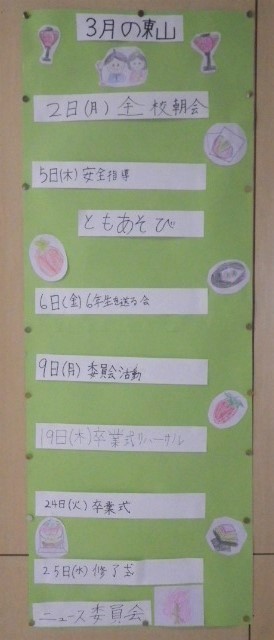 3月の東山
2日(月)全校朝会
5日(木)安全指導
ともあそび
6日(金)6年生を送る会
9日(月)委員会活動
19日(木)卒業式リハーサル
24日(火)卒業式
25日(水)修了式
ニュース委員会